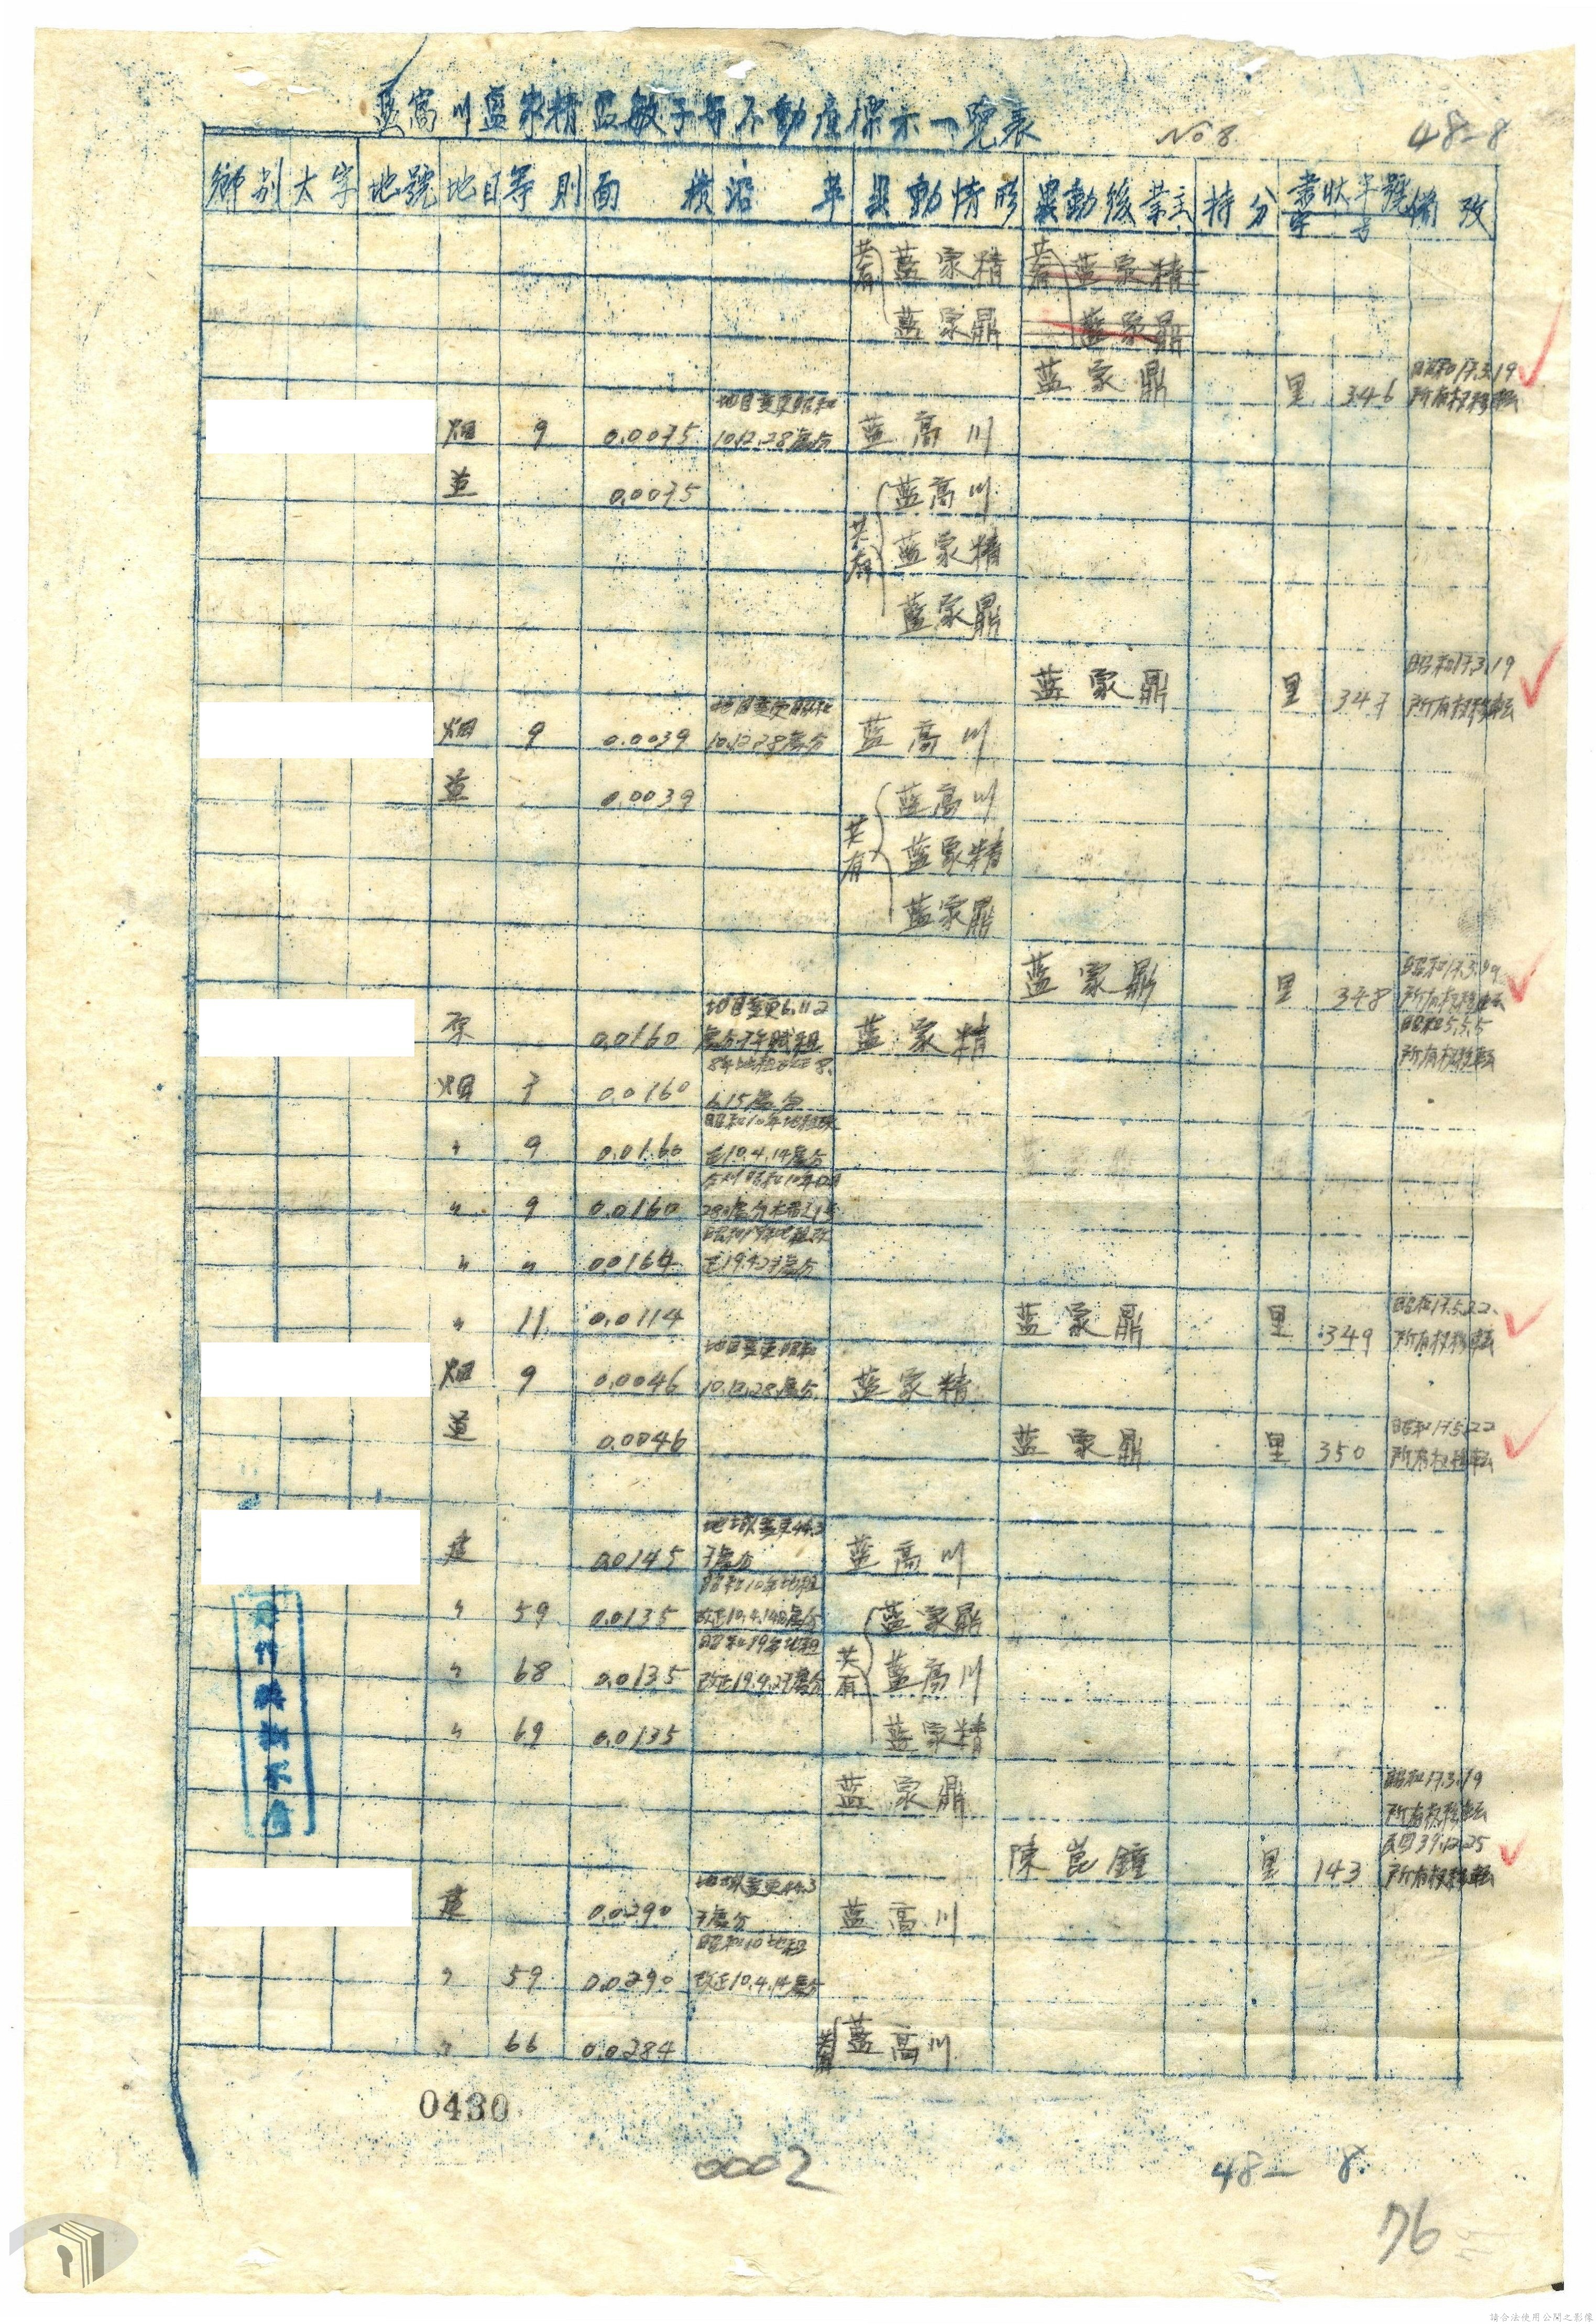 藍高川藍家精藍敏子等不動產標示一覽表 No 8. 48-8
鄉別 大字 地號 地目 等則 面積 沿革 異動情形 異動後業主 持分 書狀字號 備攷
共有 藍家精 共有 藍家精
藍家鼎 藍家鼎
藍家鼎 里 346 昭和17.3.19 所有權移轉
畑 9 0.0075 地目變更昭和10.12.28處分 藍高川
道 0.0075 共有 藍高川
藍家精
藍家鼎
藍家鼎 里 347 昭和17.3.19 所有權移轉
畑 9 0.0039 地目變更昭和10.12.28處分 藍高川
道 0.0039 共有 藍高川
藍家精
藍家鼎
藍家鼎 里 348 昭和17.3.19 所有權移轉
0.0160 地目變更6.11.2 藍家精 昭和5.5.5 所有權移轉
畑 7 0.0160 6.15處分
〃 9 0.0160 昭和10年地租改正10.4.14處分
〃 9 0.0160
〃 〃 0.0164 昭和19年地租改正19.4.27處分
〃 11 0.0114 藍家鼎 里 349 昭和17.5.22. 所有權移轉
畑 9 0.0046 地目變更昭和10.12.28處分 藍家精
道 0.0046 藍家鼎 里 350 昭和17.5.22 所有權移轉
建 0.0145 44.3 7處分 藍高川
〃 59 0.0135 昭和10年地租改正10.4.14處分 共有 藍家鼎
〃 68 0.0135 昭和19年地租改正19.4.27處分 藍高川
〃 69 0.0135 藍家精
藍家鼎 昭和17.3.19 所有權移轉
陳崑鐘 里 143 民國39.12.25 所有權移轉
建 0.0290 44.3 7處分 藍高川
〃 59 0.0290 昭和10地租改正10.4.14處分
〃 66 0.0284 共有 藍高川
0430
0002
48-8
76
請合法使用公開之影像